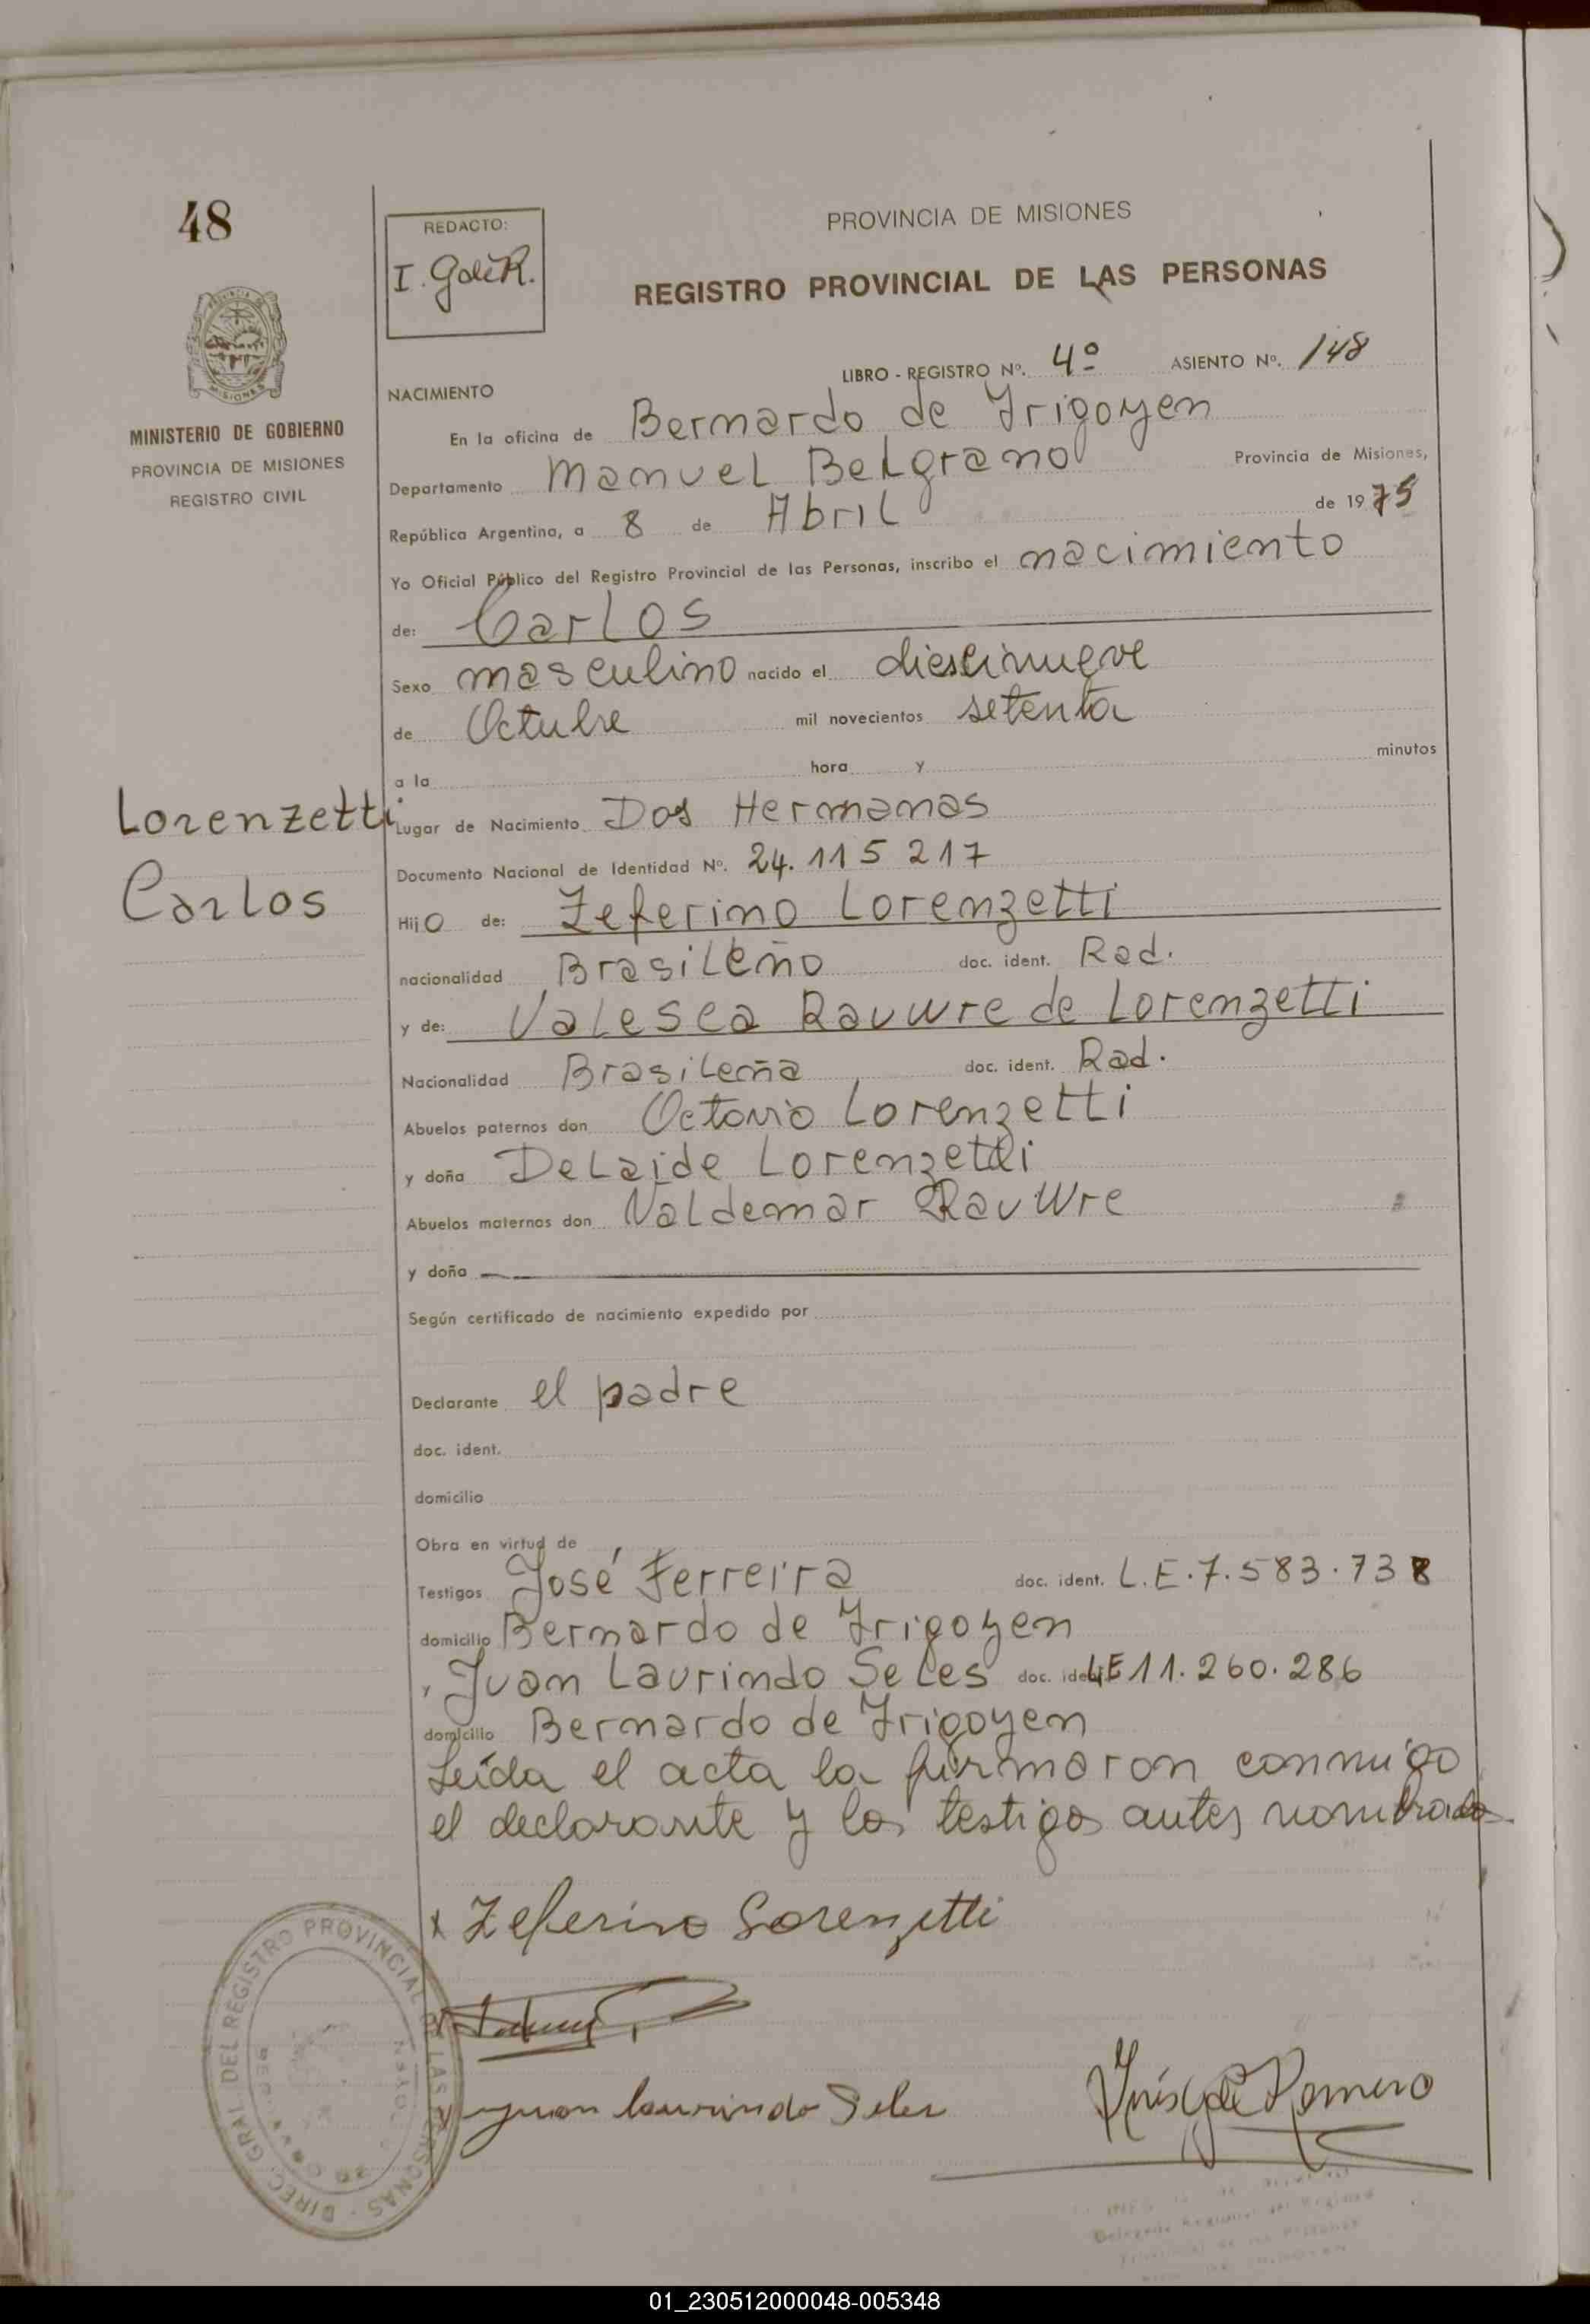 48
REDACTO:
PROVINCIA DE MISIONES
REGISTRO PROVINCIAL DE LAS PERSONAS
LIBRO - REGISTRO Nº. 4º ASIENTO Nº. 148
MINISTERIO DE GOBIERNO
PROVINCIA DE MISIONES
REGISTRO CIVIL
NACIMIENTO
En la oficina de Bernardo de Yrigoyen
Departamento Manuel Belgrano Provincia de Misiones,
República Argentina, a 8 de Abril de 1975
Yo Oficial Público del Registro Provincial de las Personas, inscribo el nacimiento
de: Carlos
Sexo masculino nacido el diescinueve
de Octubre mil novecientos setenta
a la hora y minutos
Lorenzetti
Carlos
Lugar de Nacimiento Dos Hermanas
Documento Nacional de Identidad Nº. 24.115 217
Hijo de: Zeferino Lorenzetti
nacionalidad Brasileño doc. ident. Rad.
y de: Valesca Rauwre de Lorenzetti
Nacionalidad Brasileña doc. ident. Rad.
Abuelos paternos don Octavio Lorenzetti
y doña Delaide Lorenzetti
Abuelos maternos don Valdemar Rauwre
y doña
Según certificado de nacimiento expedido por
Declarante el padre
doc. ident.
domicilio
Obra en virtud de
Testigos José Ferreira doc. ident. L.E.7.583.738
domicilio Bernardo de Yrigoyen
y Juan Laurindo Seles doc. ident. LE 11.260.286
domicilio Bernardo de Yrigoyen
Leída el acta la firmaron conmigo
el declarante y los testigos antes nombrados.
x Zeferino Lorenzetti
Juan laurindo Seles
DIREC. GRAL. DEL REGISTRO PROVINCIAL DE LAS PERSONAS
01_230512000048-005348